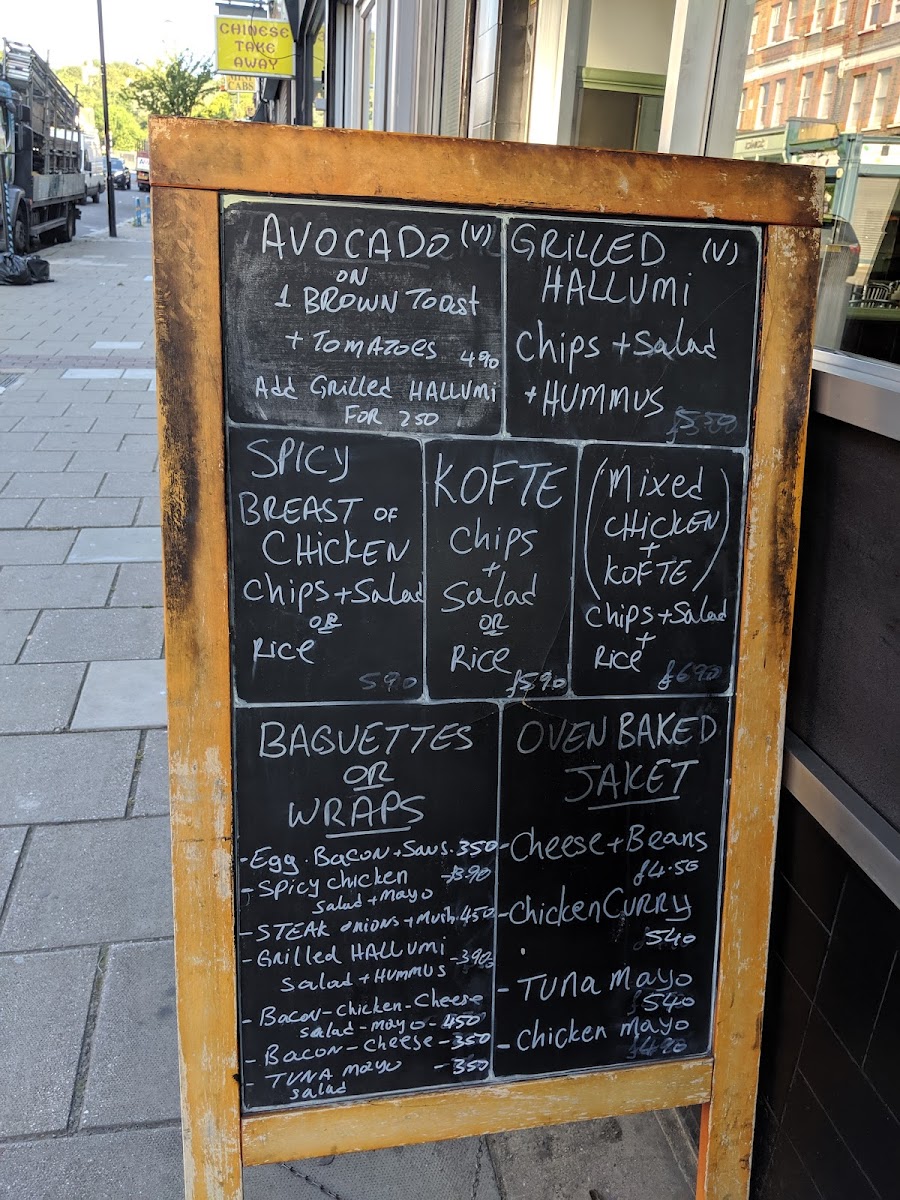 CHINESE
TAKE
AWAY
CABS
AVOCADO (V)
ON
1 BROWN Toast
+ TOMATOES 490
Add Grilled HALLUMI
FOR 250
GRILLED (V)
HALLUMI
Chips + Salad
+ HUMMUS
SPICY
BREAST OF
CHICKEN
Chips + Salad
OR
Rice
590
KOFTE
Chips
+
Salad
OR
Rice
£590
(Mixed
CHICKEN
+
KOFTE)
Chips + Salad
+
Rice
£690
BAGUETTES
OR
WRAPS
- Egg. Bacon + Saus. 350
- Spicy chicken - 390
salad + mayo
- STEAK onions + Mush 450
- Grilled HALLUMI - 390
Salad + HUMMUS
- Bacon - Chicken - Cheese
salad - mayo - 450
- Bacon - Cheese - 350
- TUNA mayo - 350
salad
OVEN BAKED
JAKET
- Cheese + Beans
£4.50
- Chicken CURRY
540
- TUNA mayo
£540
- Chicken mayo
£490